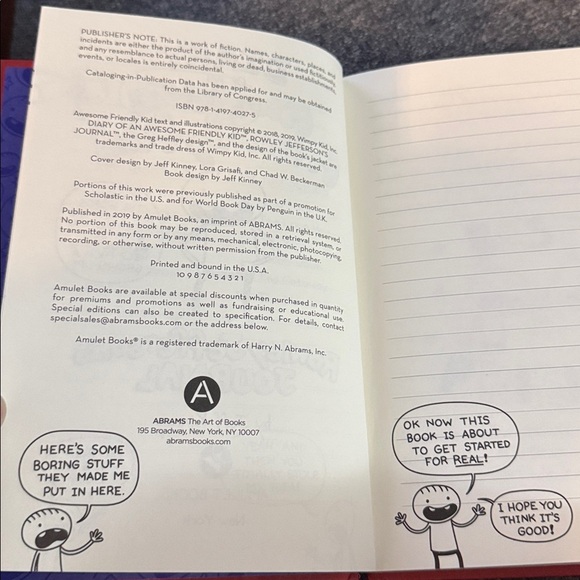 PUBLISHER'S NOTE: This is a work of fiction. Names, characters, places, and
incidents are either the product of the author's imagination or used fictitiously,
and any resemblance to actual persons, living or dead, business establishments,
events, or locales is entirely coincidental.
Cataloging-in-Publication Data has been applied for and may be obtained
from the Library of Congress.
ISBN 978-1-4197-4027-5
Awesome Friendly Kid text and illustrations copyright © 2018, 2019, Wimpy Kid, Inc.
DIARY OF AN AWESOME FRIENDLY KID™, ROWLEY JEFFERSON'S
JOURNAL™, the Greg Heffley design™, and the design of the book's jacket are
trademarks and trade dress of Wimpy Kid, Inc. All rights reserved.
Cover design by Jeff Kinney, Lora Grisafi, and Chad W. Beckerman
Book design by Jeff Kinney
Portions of this work were previously published as part of a promotion for
Scholastic in the U.S. and for World Book Day by Penguin in the U.K.
Published in 2019 by Amulet Books, an imprint of ABRAMS. All rights reserved.
No portion of this book may be reproduced, stored in a retrieval system, or
transmitted in any form or by any means, mechanical, electronic, photocopying,
recording, or otherwise, without written permission from the publisher.
Printed and bound in the U.S.A.
10 9 8 7 6 5 4 3 2 1
Amulet Books are available at special discounts when purchased in quantity
for premiums and promotions as well as fundraising or educational use.
Special editions can also be created to specification. For details, contact
specialsales@abramsbooks.com or the address below.
Amulet Books® is a registered trademark of Harry N. Abrams, Inc.
A
ABRAMS The Art of Books
195 Broadway, New York, NY 10007
abramsbooks.com
HERE'S SOME
BORING STUFF
THEY MADE ME
PUT IN HERE.
OK NOW THIS
BOOK IS ABOUT
TO GET STARTED
FOR REAL!
I HOPE YOU
THINK IT'S
GOOD!